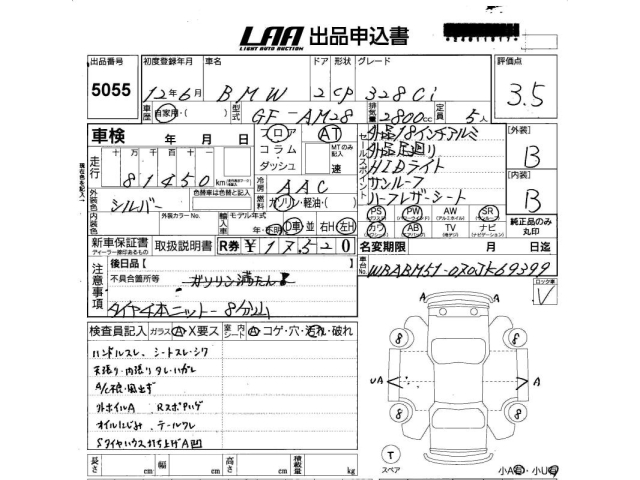 LAA 出品申込書
LIGHT AUTO AUCTION
出品番号 初度登録年月 車名 ドア 形状 グレード 評価点
5055 12年6月 BMW 2 CP 328Ci 3.5
車歴 自家用・( ) 型式 GF-AM28 排気量 2800cc 定員 5人
車検 年 月 日 フロア AT 外品18インチアルミ [外装]
コラム・ MTのみ記入 外品足廻り B
走行 十万千百十一 ダッシュ 速 セールスポイント HIDライト
81450km 冷房 AAC サンルーフ [内装]
外装色 シルバー 色替車は色替と記入 燃料 ガソリン・軽油・( ) ハーフレザーシート B
内装色 外装カラーNo. 輸入車 モデル年式 年・不明 D車 並 右H 左H PS PW AW SR 純正品のみ丸印
カワ AB TV ナビ
新車保証書 取扱説明書 R券 ¥17520 名変期限 月 日迄
ディーラー押印があるもの
注意事項 後日品[ ] 車台No. WBABM51-070JK69399
不具合箇所等 ガソリン満たん! ロック車
タイヤ4本ニットー8分山 V
検査員記入 ガラス A X要ス 室内シート A コゲ・穴・汚れ・破れ
ハンドルスレ、シートスレ・シワ
天張り・内張りタレ・ハガレ
A/C不良・風出ず
外ホイルA RスポアリG
オイルにじみ テールワレ
Sタイヤハウス打ち上げA凹
A A
8 8
UA A
8 8
T
スペア
長さ cm 幅 cm 高さ cm 積載量 kg 小A有・小U有